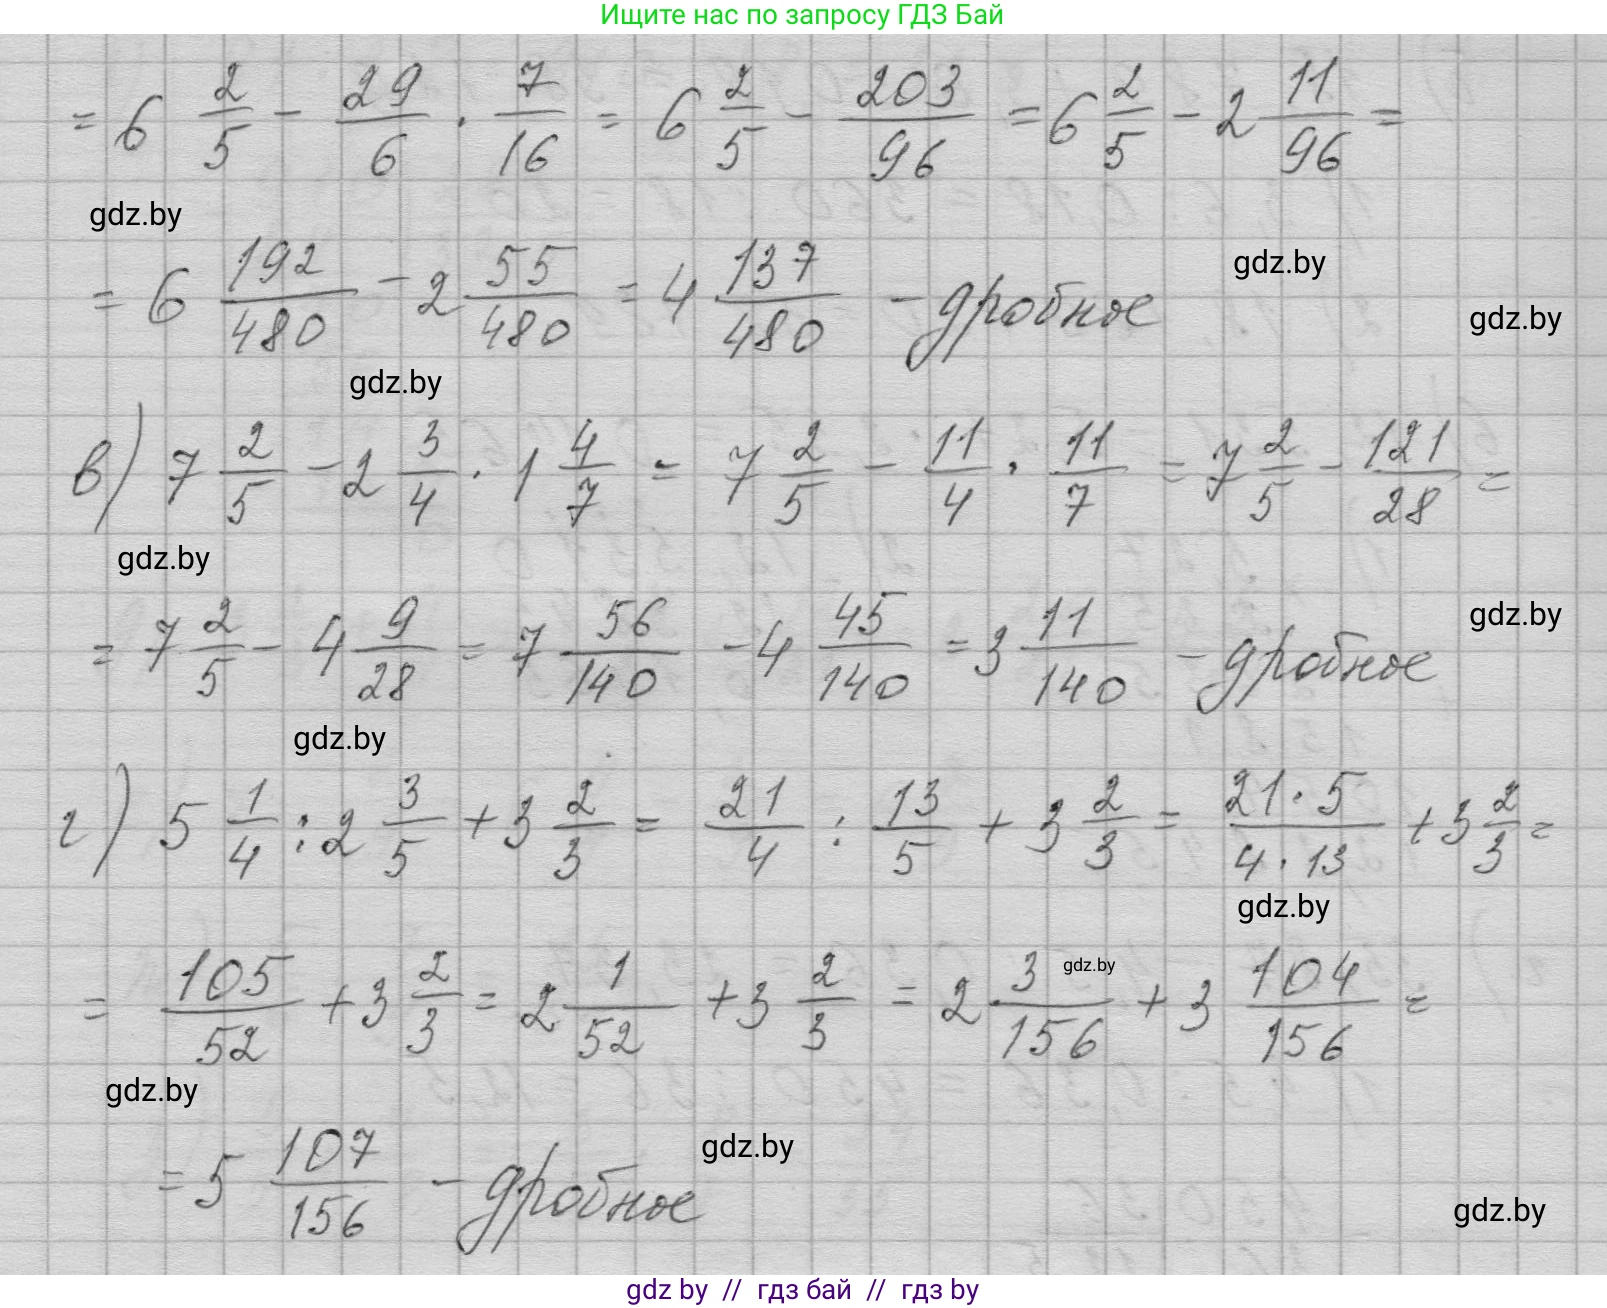 Ищите нас по запросу ГДЗ Бай
= 6 2/5 - 29/6 · 7/16 = 6 2/5 - 203/96 = 6 2/5 - 2 11/96 =
gdz.by
= 6 192/480 - 2 55/480 = 4 137/480 - дробное
gdz.by
gdz.by
gdz.by
в) 7 2/5 - 2 3/4 · 1 4/7 = 7 2/5 - 11/4 · 11/7 = 7 2/5 - 121/28 =
gdz.by
= 7 2/5 - 4 9/28 = 7 56/140 - 4 45/140 = 3 11/140 - дробное
gdz.by
gdz.by
г) 5 1/4 : 2 3/5 + 3 2/3 = 21/4 : 13/5 + 3 2/3 = 21·5/4·13 + 3 2/3 =
gdz.by
= 105/52 + 3 2/3 = 2 1/52 + 3 2/3 = 2 3/156 + 3 104/156 =
gdz.by
gdz.by
= 5 107/156 - дробное
gdz.by
gdz.by
gdz by // гдз бай // гдз by